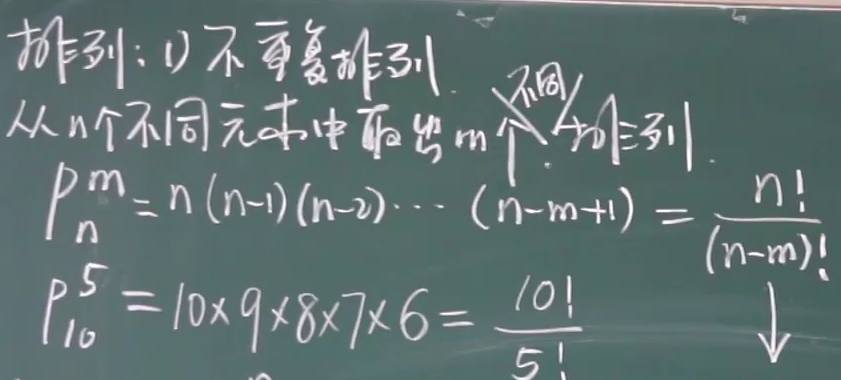 排列:1)不重复排列.
从n个不同元素中取出m个不同排列.
P_n^m=n(n-1)(n-2)⋯(n-m+1)=n!/(n-m)!
P_10^5=10×9×8×7×6=10!/5!